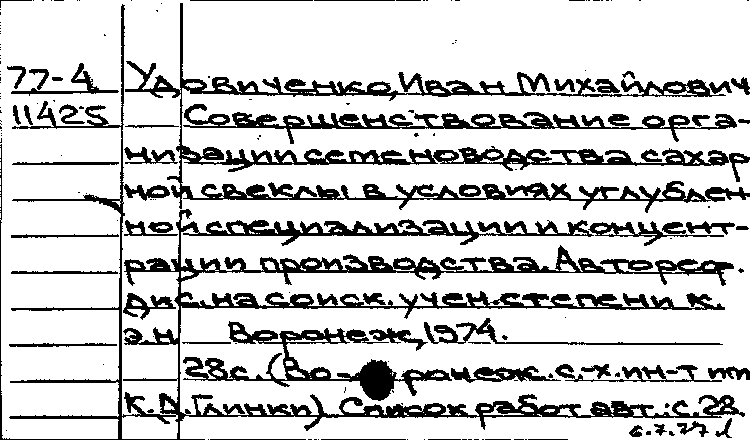 77-4 Удовиченко, Иван Михайлович
11425 Совершенствование орга-
низации семеноводства сахар
ной свеклы в условиях углублен
ной специализации и концент-
рации производства. Автореф.
дис. на соиск. учен. степени к.
э.н Воронеж, 1974.
28с. (Во- ронеж. с.-х. ин-т им
К.Д. Глинки) Список работ авт.: с.28.
6.7.77